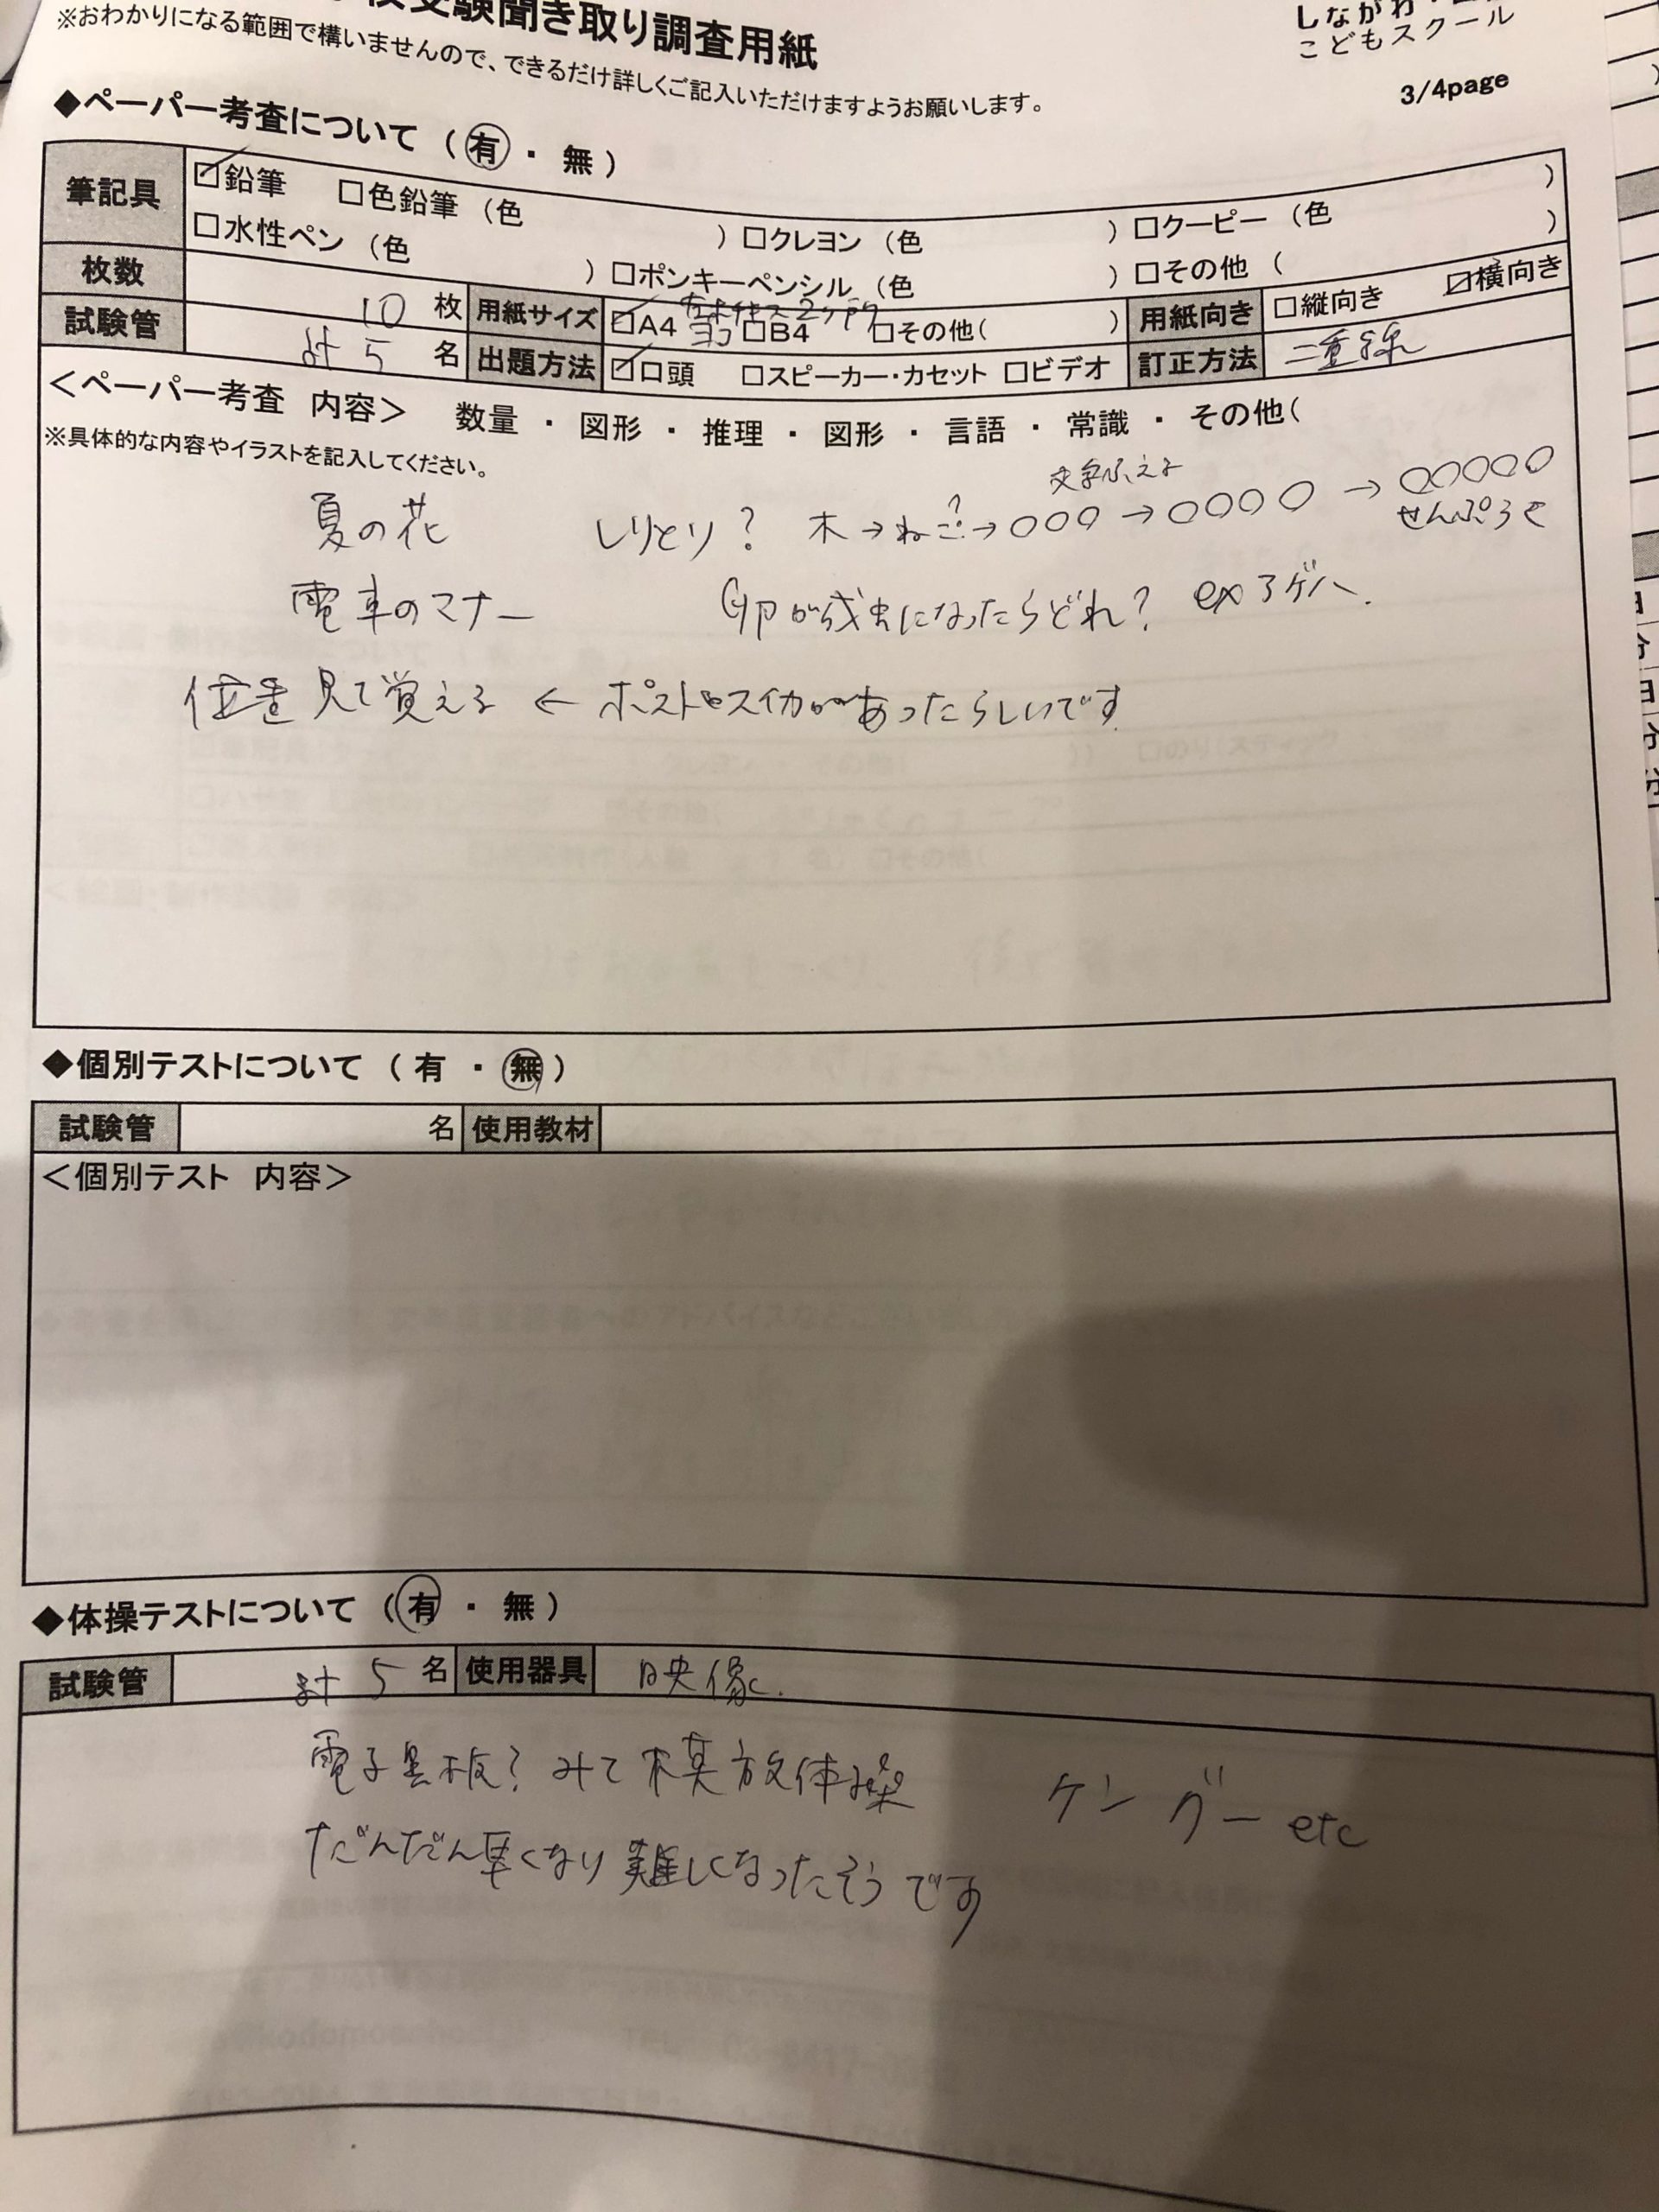 校受験聞き取り調査用紙
※おわかりになる範囲で構いませんので、できるだけ詳しくご記入いただけますようお願いします。
しながわ・
こどもスクール
3/4page
◆ペーパー考査について ( 有 ・ 無 )
筆記具 ☑鉛筆 □色鉛筆 (色 ) □クレヨン (色 ) □クーピー (色 )
□水性ペン (色 ) □ポンキーペンシル (色 ) □その他 ( )
枚数 10 枚 用紙サイズ ☑A4 ヨコ □B4 □その他( ) 用紙向き □縦向き ☑横向き
左ホチキス2ヶ所
試験管 計 5 名 出題方法 ☑口頭 □スピーカー・カセット □ビデオ 訂正方法 二重線
<ペーパー考査 内容> 数量 ・ 図形 ・ 推理 ・ 図形 ・ 言語 ・ 常識 ・ その他(
※具体的な内容やイラストを記入してください。
文字ふえる
夏の花 しりとり? 木→ねこ→○○○→○○○○→○○○○○
?
せんぷうき
電車のマナー 卵が成虫になったらどれ? ex アゲハ.
位置 見て覚える ← ポストやスイカがあったらしいです
◆個別テストについて ( 有 ・ 無 )
試験管 名 使用教材
<個別テスト 内容>
◆体操テストについて ( 有 ・ 無 )
試験管 計 5 名 使用器具 映像.
電子黒板? みて 模放体操 ケン グー etc
だんだん早くなり 難しくなったそうです